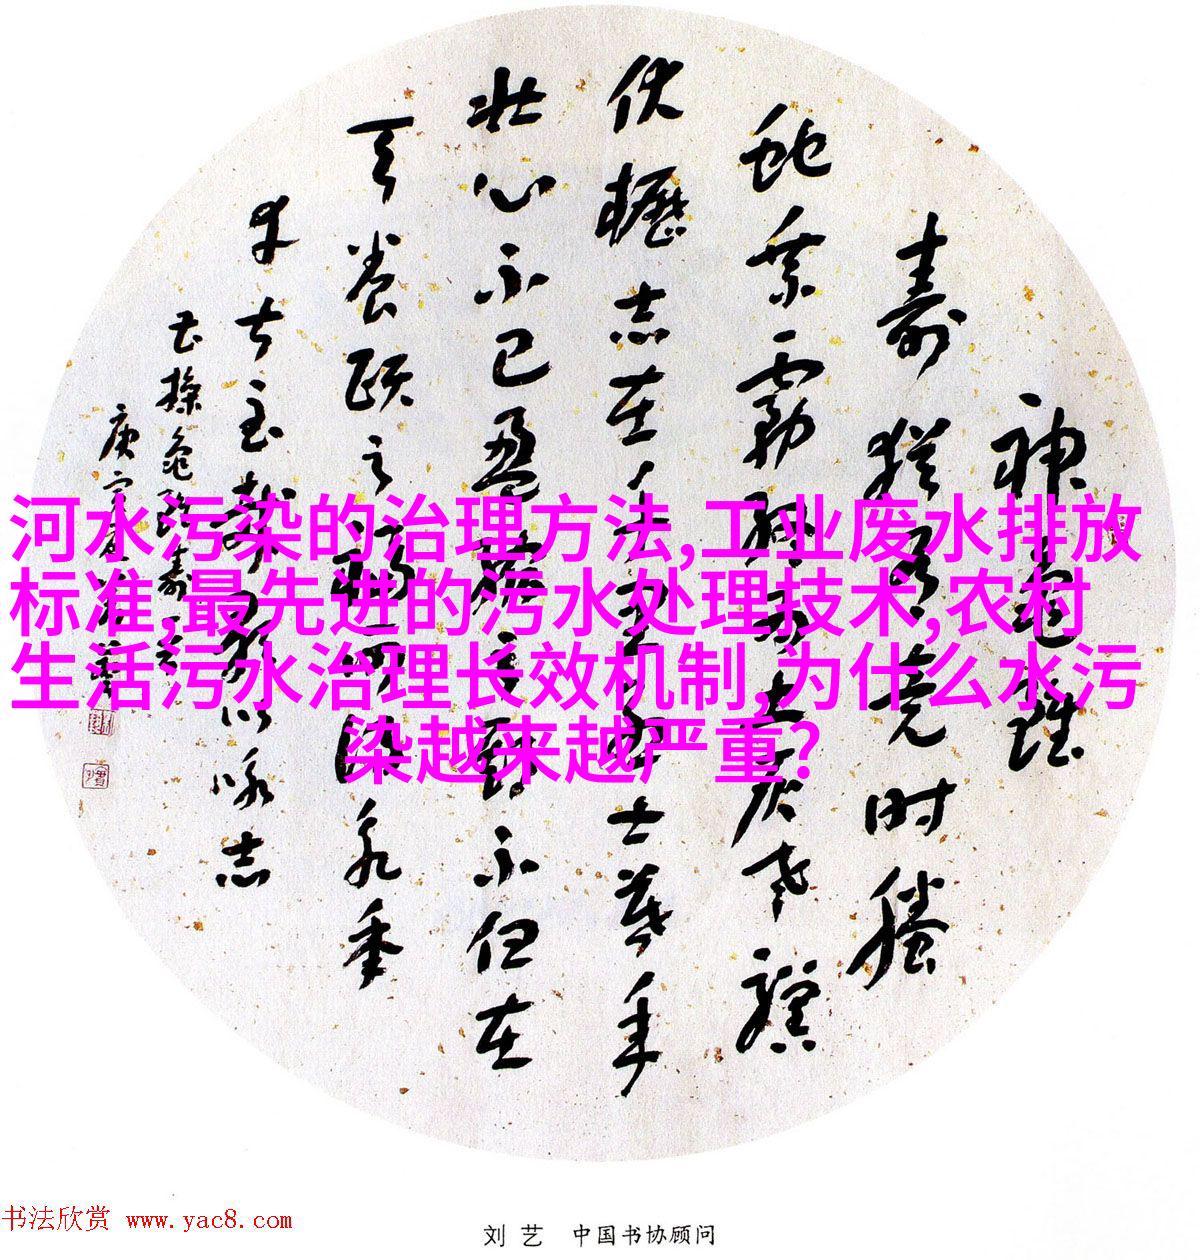 神龟虽
寿猶有竟时腾
蛇乘雾终为土灰老骥
伏櫪志在千里烈士暮年
壮心不已盈缩之期不但在
天养颐之福可得永年
幸甚至哉歌以咏志
曹操龟虽寿
庚寅
河水污染的治理方法,工业废水排放
标准,最先进的污水处理技术,农村
生活污水治理长效机制,为什么水污
染越来越严重?
书法欣赏 www.yac8.com
刘艺 中国书协顾问